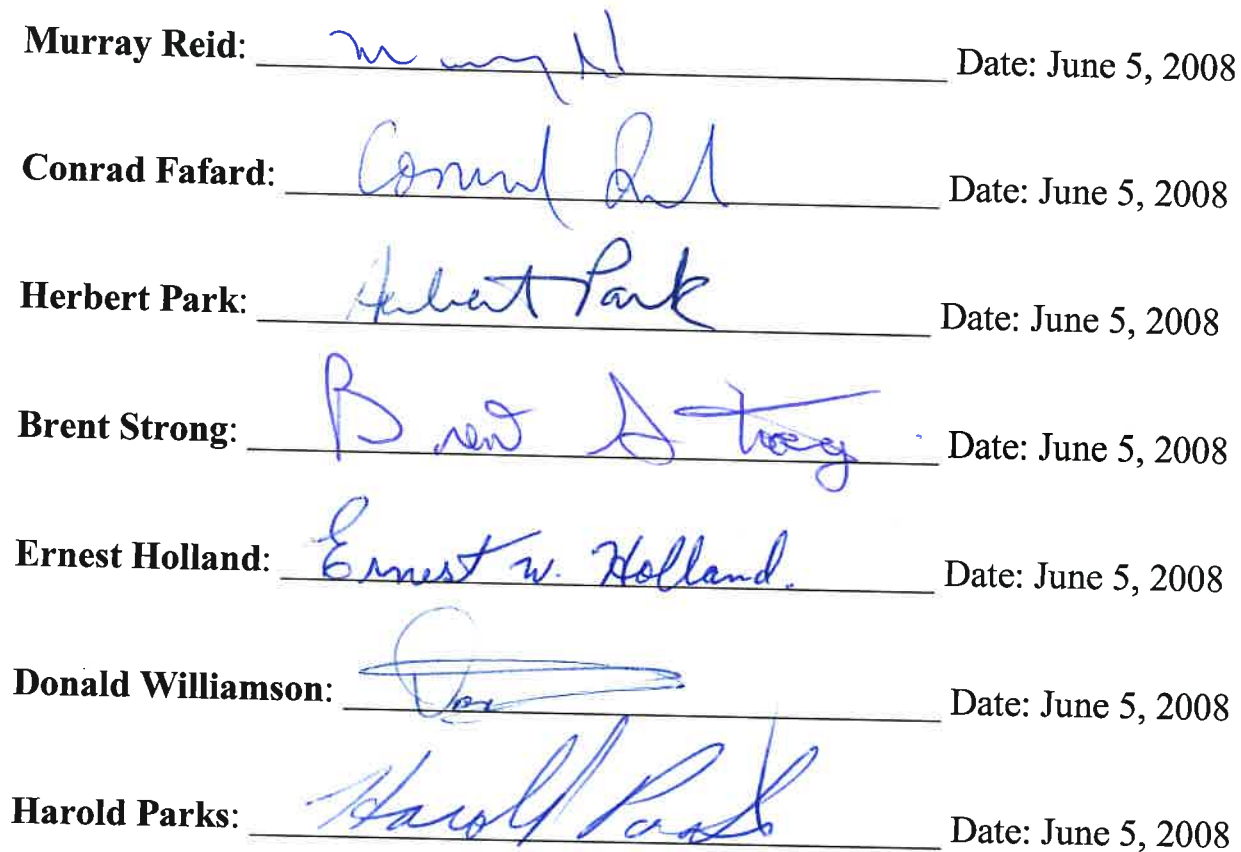 Murray Reid: Date: June 5, 2008
Conrad Fafard: Conrad Date: June 5, 2008
Herbert Park: Herbert Park Date: June 5, 2008
Brent Strong: Brent Strong Date: June 5, 2008
Ernest Holland: Ernest W. Holland. Date: June 5, 2008
Donald Williamson: Don Date: June 5, 2008
Harold Parks: Harold Parks Date: June 5, 2008